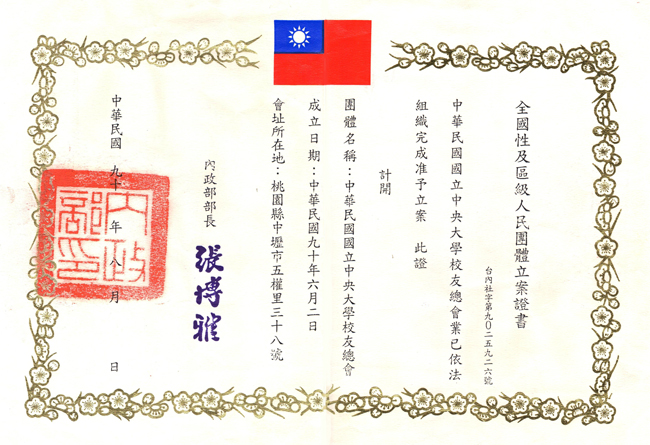 全國性及區級人民團體立案證書
台內社字第九0二五九二六號
中華民國國立中央大學校友總會業已依法
組織完成准予立案　此證
計開
團體名稱：中華民國國立中央大學校友總會
成立日期：中華民國九十年六月二日
會址所在地：桃園縣中壢市五權里三十八號
內政部部長
張博雅
中華民國　九十　年　八　月　　日
內政部印